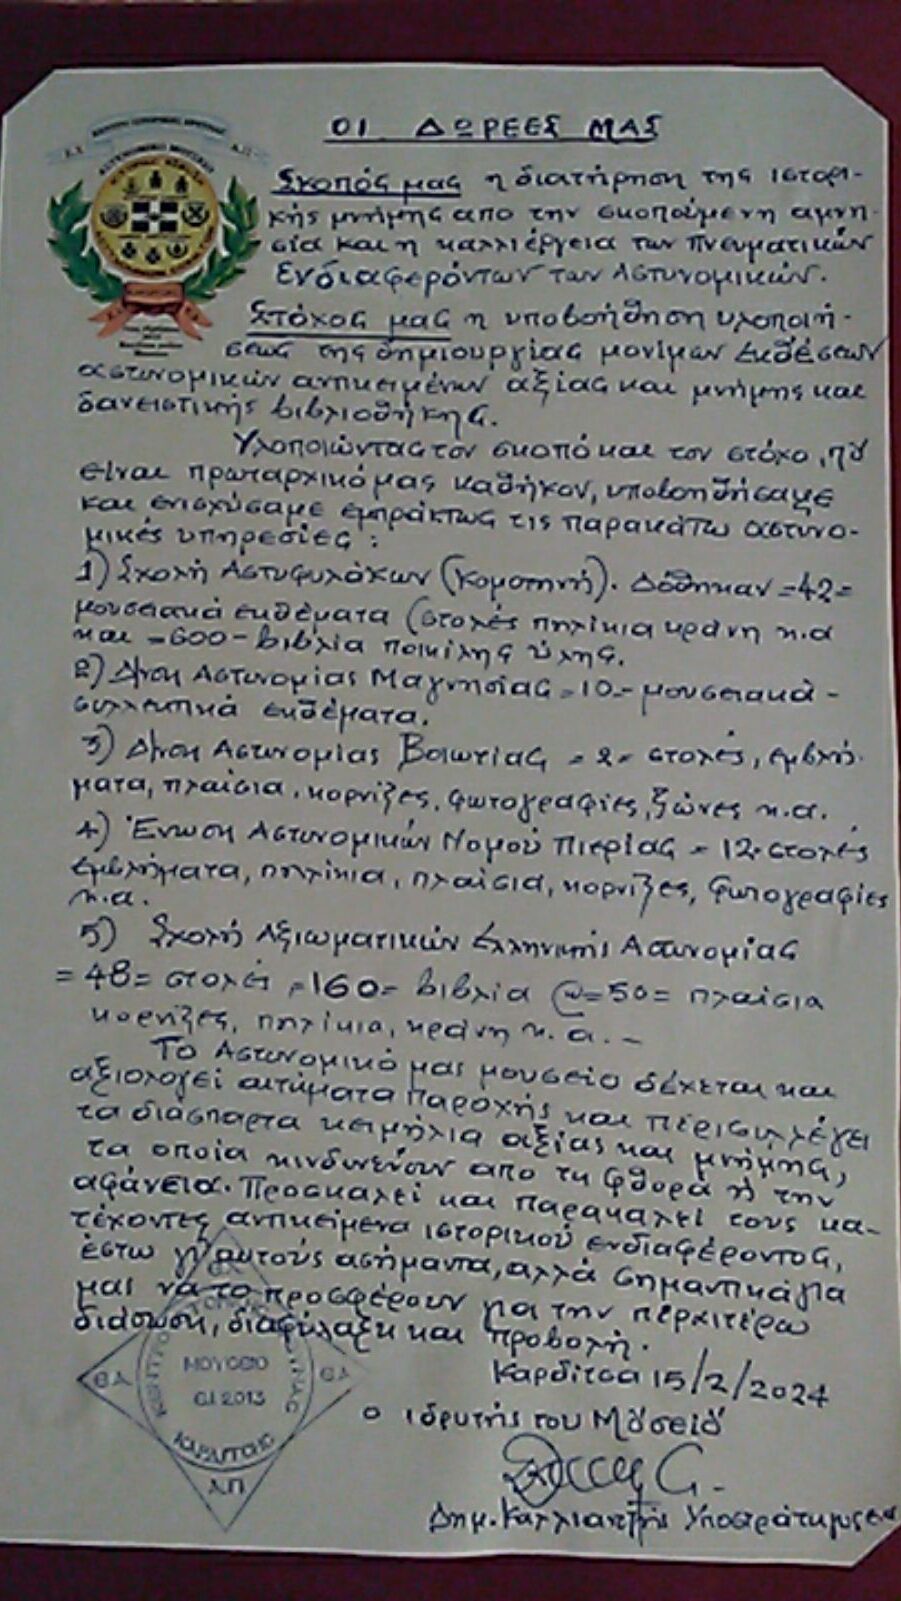 ΟΙ ΔΩΡΕΕΣ ΜΑΣ
ΑΣΤΥΝΟΜΙΚΟ ΜΟΥΣΕΙΟ
Σκοπός μας η διατήρηση της ιστορι-
κής μνήμης απο την σκοπούμενη αμνη-
σία και η καλλιέργεια των Πνευματικών
Ενδιαφερόντων των Αστυνομικών.
Στόχος μας η υποβοήθηση υλοποιή-
σεως της δημιουργίας μονίμων εκθέσεων
αστυνομικών αντικειμένων αξίας και μνήμης και
δανειστικής βιβλιοθήκης.
Υλοποιώντας τον σκοπό και τον στόχο, πȣ
είναι πρωταρχικό μας καθήκον, υποβοηθήσαμε
και ενισχύσαμε εμπράκτως τις παρακάτω αστυνο-
μικές υπηρεσίες:
1) Σχολή Αστυφυλάκων (Κομοτηνή). Δόθηκαν =42=
μουσειακά εκθέματα (στολές πηλίκια κράνη κ.α
και =600- βιβλία ποικίλης ύλης.
2) Δ/νση Αστυνομίας Μαγνησίας =10.- μουσειακά-
συλλεκτικά εκθέματα.
3) Δ/νση Αστυνομίας Βοιωτίας =2= στολές, εμβλή-
ματα, πλαίσια, κορνίζες, φωτογραφίες, ζώνες κ.α.
4) Ένωση Αστυνομικών Νομού Πιερίας = 12= στολές
εμβλήματα, πηλίκια, πλαίσια, κορνίζες, φωτογραφίες
κ.α.
5) Σχολή Αξιωματικών Ελληνικής Αστυνομίας
=48= στολές =160= βιβλία =50= πλαίσια
κορνίζες, πηλίκια, κράνη κ.α. -
Το Αστυνομικό μας μουσείο δέχεται και
αξιολογεί αιτήματα παροχής και περισυλλέγει
τα διάσπαρτα κειμήλια αξίας και μνήμης,
τα οποία κινδυνεύουν απο τη φθορά ή την
αφάνεια. Προσκαλεί και παρακαλεί τους κα-
τέχοντες αντικείμενα ιστορικού ενδιαφέροντος,
έστω γι' αυτούς ασήμαντα, αλλά σημαντικά για
μας να τα προσφέρουν για την περαιτέρω
διάσωση, διαφύλαξη και προβολή.
Καρδίτσα 15/2/2024
ο ιδρυτής του Μȣσείȣ
Δημ. Καλλιαντής Υποστράτηγος εα
ΜΟΥΣΕΙΟ
ΕΛ 2013
ΚΑΡΔΙΤΣΗΣ
Ε.Λ
Α.Π